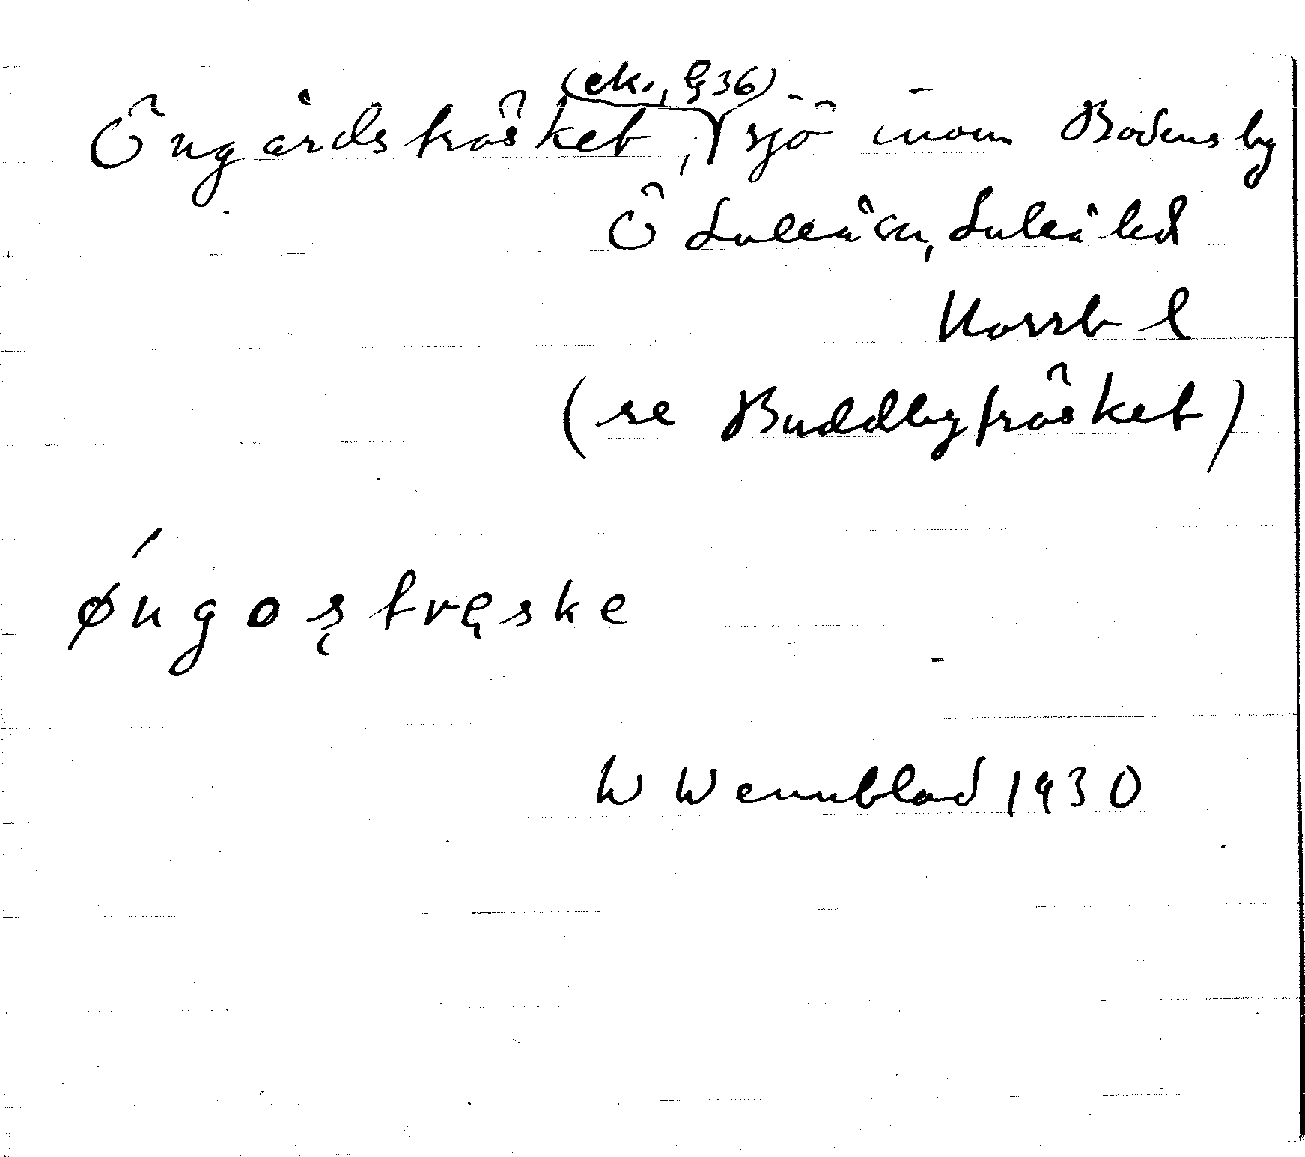 (ek., § 36)
Öngårdsträsket, sjö inom Bodens by
Ö Luleå sn, Luleå tld
Norrb l
(se Buddbyträsket)
øngos̨ tręske
W Wennblad 1930